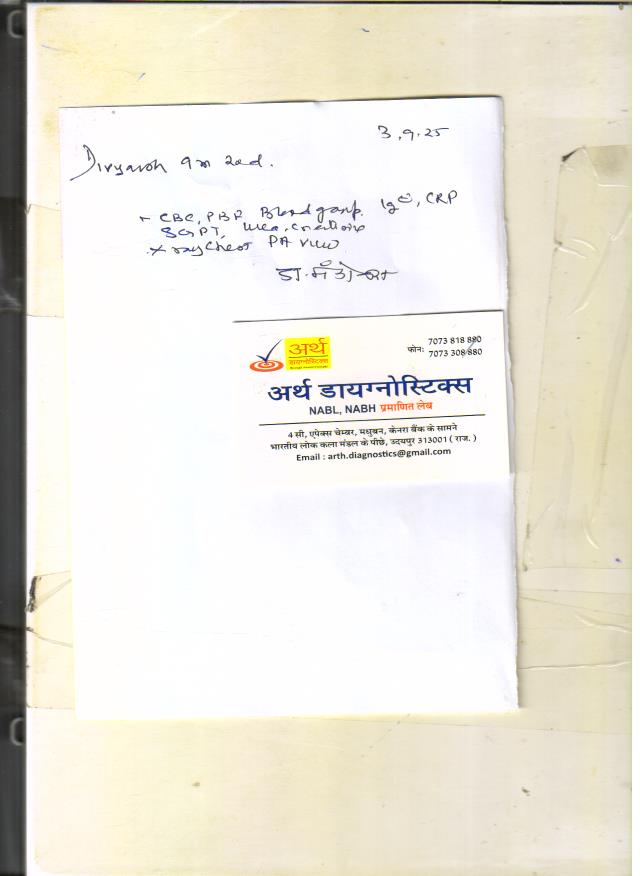 3.9.25
CBC, PBF Blood group. IgE, CRP
SGPT, Urea, Creatinine
X ray Chest PA View
डा.
अर्थ
डायग्नोस्टिक्स
फोन: 7073 818 880
7073 308 880
अर्थ डायग्नोस्टिक्स
NABL, NABH प्रमाणित लेब
4 सी, एपेक्स चेम्बर, मधुबन, केनरा बैंक के सामने
भारतीय लोक कला मंडल के पीछे, उदयपुर 313001 ( राज. )
Email : arth.diagnostics@gmail.com